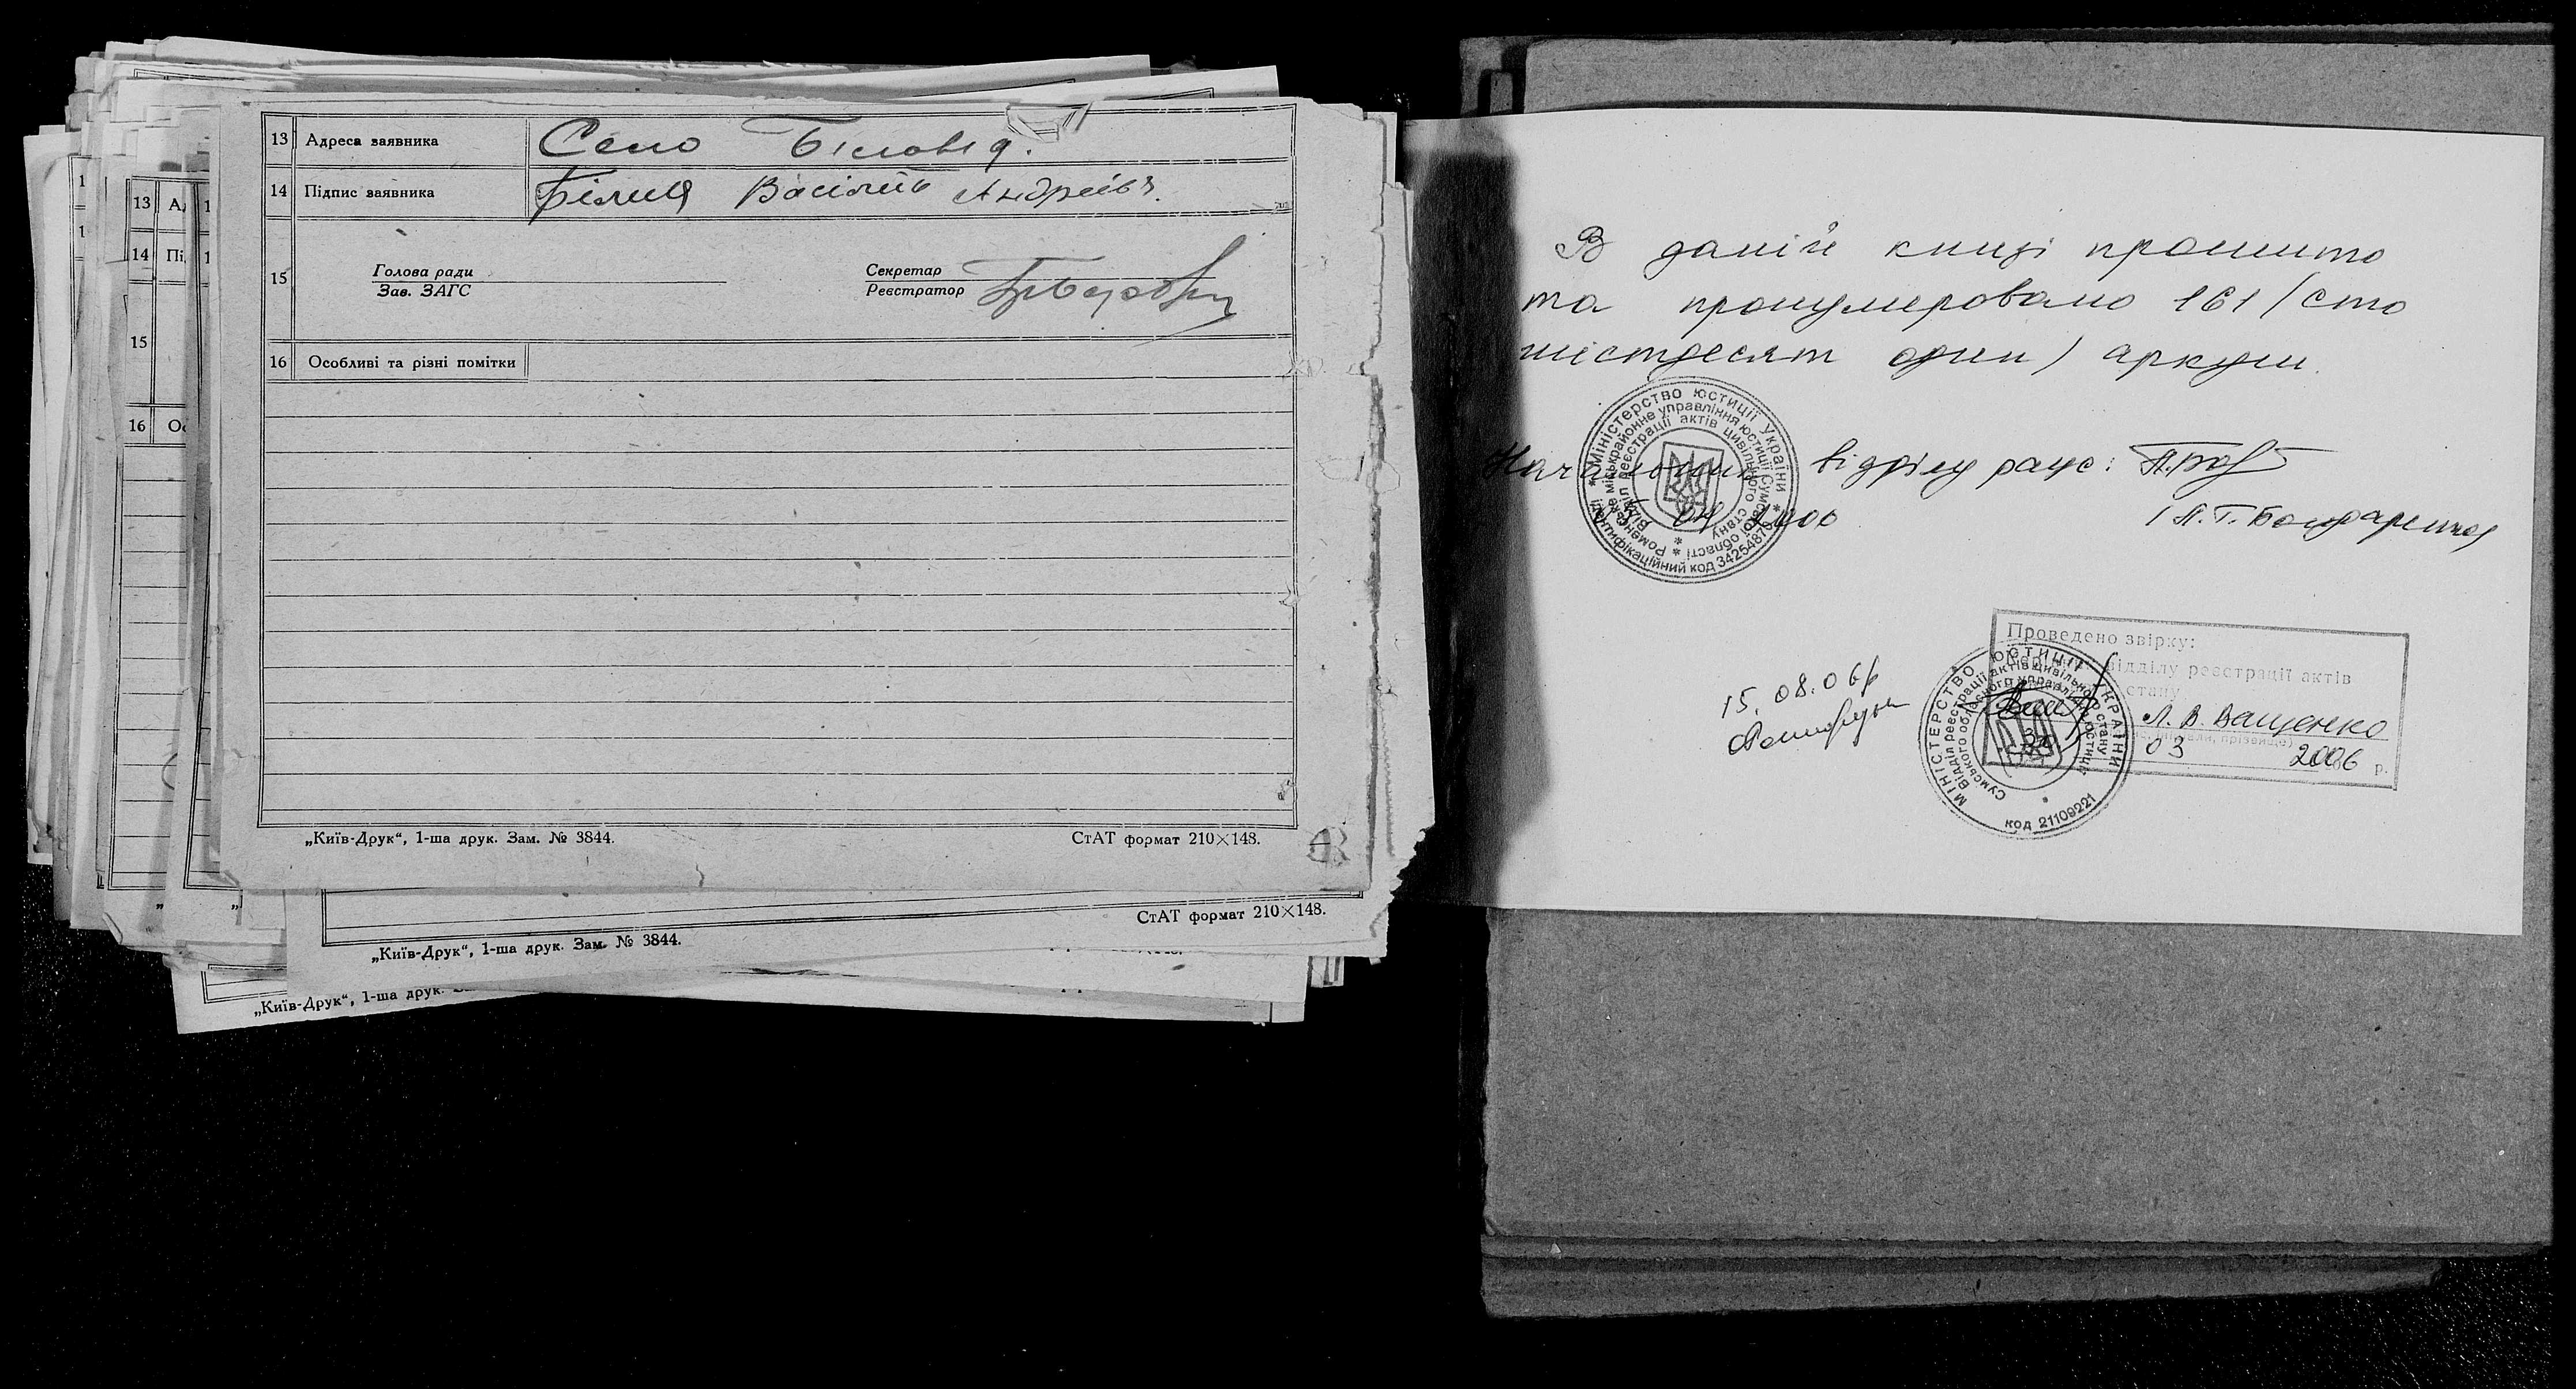 13 Адреса заявника Село Біловід.
14 Підпис заявника Білиця Василь Андреев
15 Голова ради
Зав. ЗАГС
Секретар
Реєстратор
16 Особливі та різні помітки
„Київ-Друк“, 1-ша друк. Зам. № 3844.
СтАТ формат 210×148.
СтАТ формат 210×148.
„Київ-Друк“, 1-ша друк. Зам. № 3844.
„Київ-Друк“, 1-ша друк.
13
14
15
16
В даній книзі прошито
та пронумеровано 161 (сто
шістдесят один) аркуш.
Начальник відділу рацс:
(Л.Г. Бондаренко)
Міністерство юстиції України * Ідентифікаційний код 34254876 *
Роменське міськрайонне управління юстиції Сумської області *
Відділ реєстрації актів цивільного стану *
15.08.06р
Проведено звірку:
відділу реєстрації актів
стану
Л. В. Ващенко
03 2006 р.
МІНІСТЕРСТВО ЮСТИЦІЇ УКРАЇНИ
Відділ реєстрації актів цивільного стану
Сумського обласного управління юстиції
код 21109221